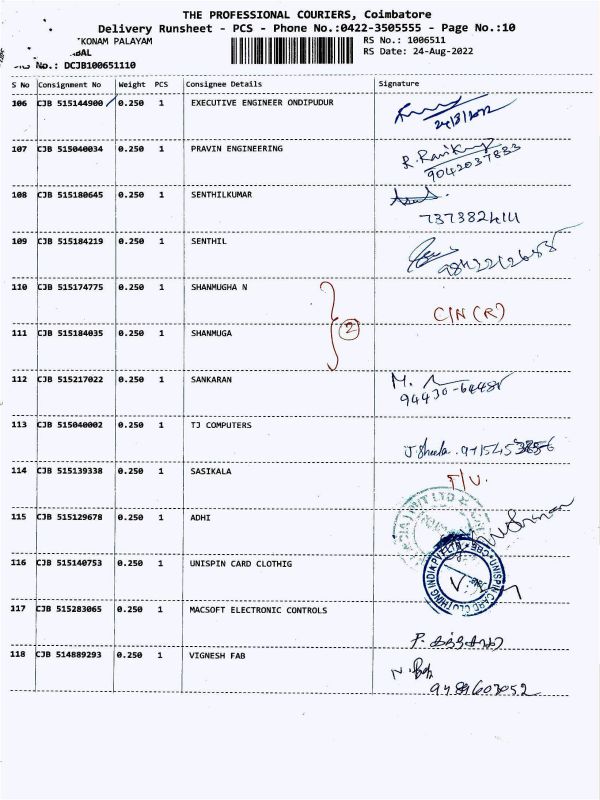 THE PROFESSIONAL COURIERS, Coimbatore
Delivery Runsheet - PCS - Phone No.:0422-3505555 - Page No.:10
KONAM PALAYAM
RS No.: 1006511
RS Date: 24-Aug-2022
No.: DCJB100651110
S No Consignment No Weight PCS Consignee Details Signature
106 CJB 515144900 0.250 1 EXECUTIVE ENGINEER ONDIPUDUR
24/8/2022
107 CJB 515040034 0.250 1 PRAVIN ENGINEERING R. Ravikumar
9042037883
108 CJB 515180645 0.250 1 SENTHILKUMAR
7373824111
109 CJB 515184219 0.250 1 SENTHIL
110 CJB 515174775 0.250 1 SHANMUGHA N
2 C/N (R)
111 CJB 515184035 0.250 1 SHANMUGA
112 CJB 515217022 0.250 1 SANKARAN M.
113 CJB 515040002 0.250 1 TJ COMPUTERS
J. Sheela.
114 CJB 515139338 0.250 1 SASIKALA
115 CJB 515129678 0.250 1 ADHI
116 CJB 515140753 0.250 1 UNISPIN CARD CLOTHIG
UNISPIN CARD CLOTHING INDIA PVT LTD CBE
117 CJB 515283065 0.250 1 MACSOFT ELECTRONIC CONTROLS
118 CJB 514889293 0.250 1 VIGNESH FAB
9489603052